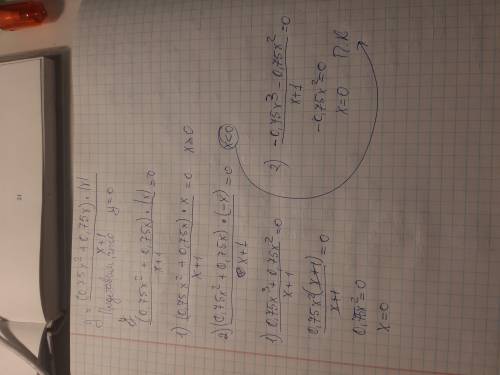 y = (0,75x² + 0,75x) · |x| / x+1
y=0
(0,75x² + 0,75x) · |x| / x+1 = 0
1) (0,75x² + 0,75x) · x / x+1 = 0 x ≥ 0
2) (0,75x² + 0,75x) · (-x) / x+1 = 0 x<0
1) 0,75x³ + 0,75x² / x+1 = 0
0,75x²(x+1) / x+1 = 0
0,75x² = 0
x=0
2) -0,75x³ - 0,75x² / x+1 = 0
-0,75x² = 0
x=0 П.К